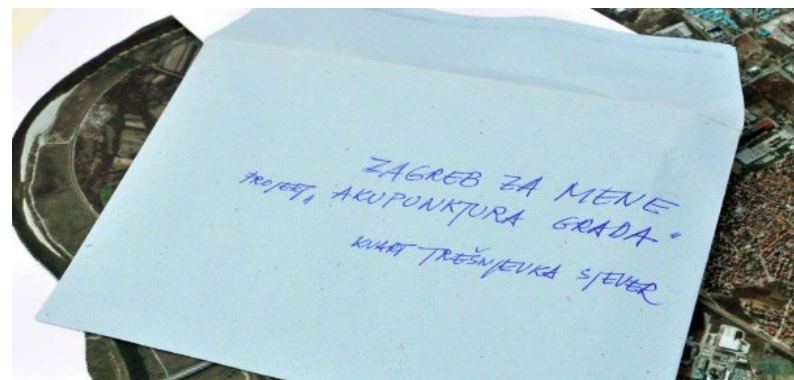 ZAGREB ZA MENE
PROJEKT „AKUPUNKTURA GRADA"
KVART TREŠNJEVKA SJEVER